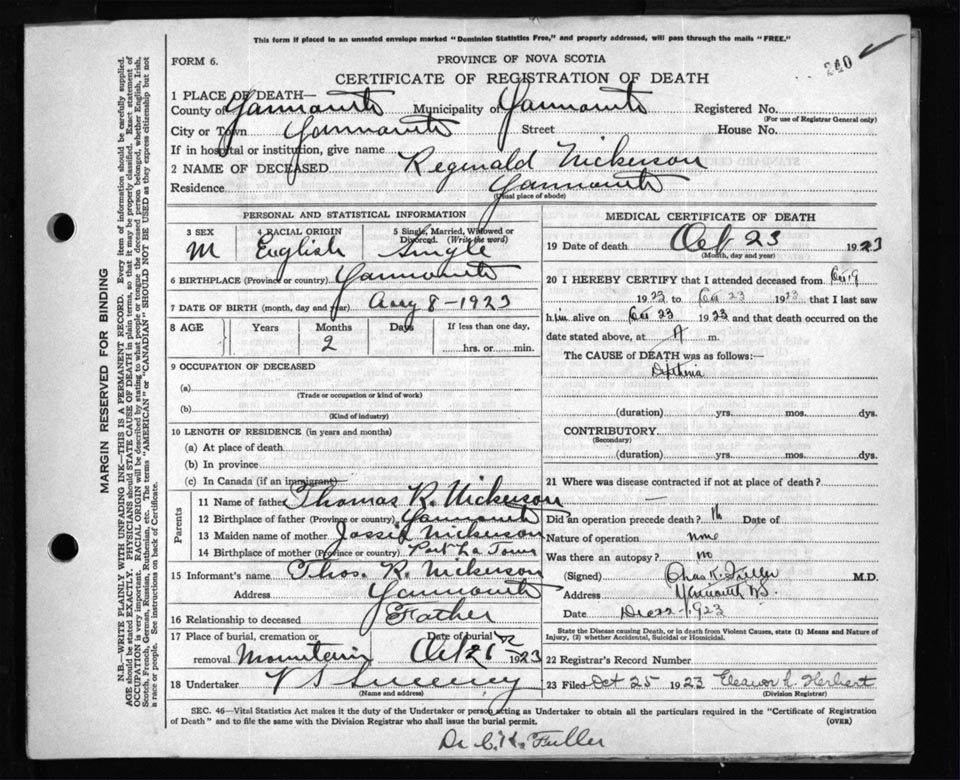 This form if placed in an unsealed envelope marked "Dominion Statistics Free," and properly addressed, will pass through the mails "FREE."
240
FORM 6.
PROVINCE OF NOVA SCOTIA
CERTIFICATE OF REGISTRATION OF DEATH
1 PLACE OF DEATH—
County of Yarmouth Municipality of Yarmouth Registered No.
(For use of Registrar General only)
City or Town Yarmouth Street House No.
If in hospital or institution, give name
2 NAME OF DECEASED Reginald Nickerson
Residence Yarmouth
(Usual place of abode)
PERSONAL AND STATISTICAL INFORMATION
3 SEX 4 RACIAL ORIGIN 5 Single, Married, Widowed or Divorced. (Write the word)
M English Single
6 BIRTHPLACE (Province or country) Yarmouth
7 DATE OF BIRTH (month, day and year) Aug 8 - 1923
8 AGE Years Months Days If less than one day,
2 hrs. or min.
9 OCCUPATION OF DECEASED
(a)
(Trade or occupation or kind of work)
(b)
(Kind of industry)
10 LENGTH OF RESIDENCE (in years and months)
(a) At place of death
(b) In province
(c) In Canada (if an immigrant)
Parents
11 Name of father Thomas R. Nickerson
12 Birthplace of father (Province or country) Yarmouth
13 Maiden name of mother Jossie Nickerson
14 Birthplace of mother (Province or country) Port La Tour
15 Informant's name Thos. R. Nickerson
Address Yarmouth
16 Relationship to deceased Father
17 Place of burial, cremation or Date of burial
removal Mountain Oct 25 1923
18 Undertaker V S Sweeney
(Name and address)
MEDICAL CERTIFICATE OF DEATH
19 Date of death Oct 23 1923
(Month, day and year)
20 I HEREBY CERTIFY that I attended deceased from
1923 to Oct 23 1923 that I last saw
him alive on Oct 23 1923 and that death occurred on the
date stated above, at A m.
The CAUSE of DEATH was as follows:—
(duration) yrs. mos. dys.
CONTRIBUTORY.
(Secondary)
(duration) yrs. mos. dys.
21 Where was disease contracted if not at place of death?
—
Did an operation precede death? Date of
Nature of operation none
Was there an autopsy? no
(Signed) Chas K. Fuller M.D.
Address Yarmouth NS.
Date 1923
State the Disease causing Death, or in death from Violent Causes, state (1) Means and Nature of
Injury, (2) whether Accidental, Suicidal or Homicidal.
22 Registrar's Record Number
23 Filed Oct 25 1923 Eleanor L. Herbert
(Division Registrar)
SEC. 46—Vital Statistics Act makes it the duty of the Undertaker or person acting as Undertaker to obtain all the particulars required in the "Certificate of Registration
of Death" and to file the same with the Division Registrar who shall issue the burial permit. (OVER)
Dr C. K. Fuller
MARGIN RESERVED FOR BINDING
N.B.—WRITE PLAINLY WITH UNFADING INK—THIS IS A PERMANENT RECORD. Every item of information should be carefully supplied.
AGE should be stated EXACTLY. PHYSICIANS should STATE CAUSE OF DEATH in plain terms, so that it may be properly classified. Exact statement of
OCCUPATION is very important. RACIAL ORIGIN will be described by stating to what people or tongue the deceased person belonged, whether English, Irish,
Scotch, French, German, Russian, Ruthenian, etc. The terms "AMERICAN" or "CANADIAN" SHOULD NOT BE USED as they express citizenship but not
a race or people. See instructions on back of Certificate.